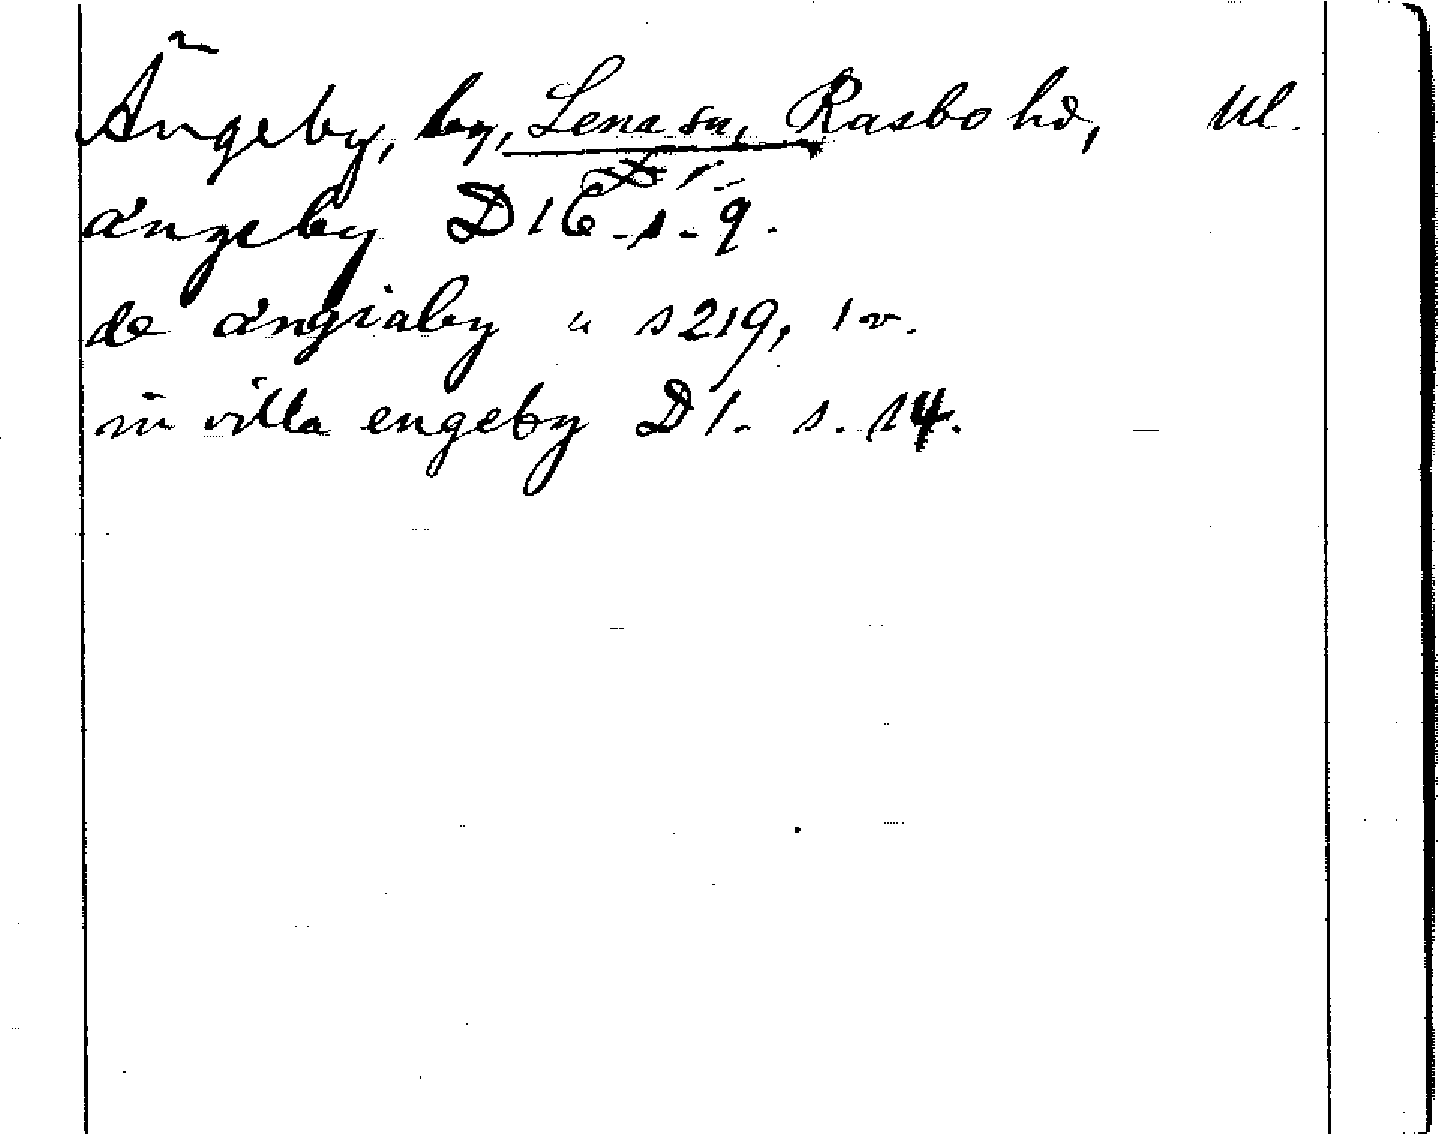 Ängeby, by, Lena sn, Rasbo hd, Ul.
ängeby D16 - s - 9.
de ängiaby " s 219, 1 v.
in villa engeby D1. s. 14.